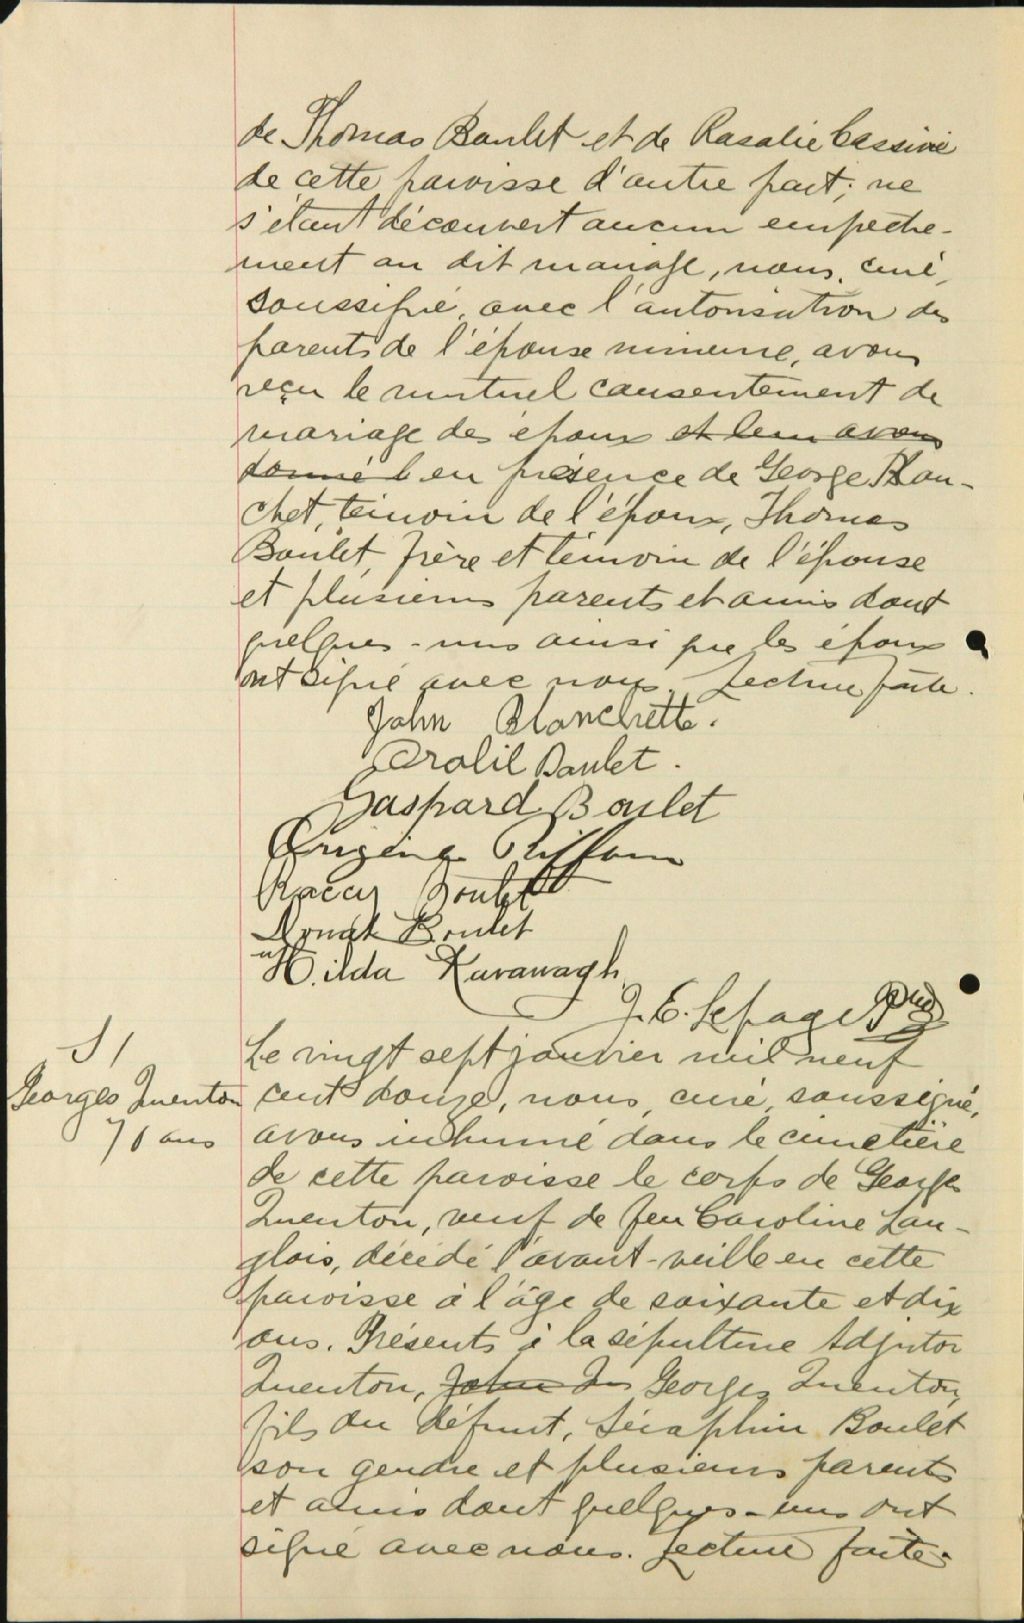 de Thomas Boulet et de Rosalie Cassivie
de cette paroisse d'autre part; ne
s'étant découvert aucun empeche-
ment au dit mariage, nous, curé,
soussigné, avec l'autorisation des
parents de l'épouse mineure, avons
reçu le mutuel consentement de
mariage des époux et leur avons
donné l en présence de George Blan-
chet, témoin de l'époux, Thomas
Boulet, frère et témoin de l'épouse
et plusieurs parents et amis dont
quelques-uns ainsi que les époux
ont signé avec nous. Lecture faite.
John Blanchette.
Boulet.
Gaspard Boulet
Origène Riffou
Boulet
Donat Boulet
Hilda Kavanagh
J. E. Lepage Ptre
S 1
Georges Quenton
70 ans
Le vingt sept janvier mil neuf
cent douze, nous, curé, soussigné,
avons inhumé dans le cimetière
de cette paroisse le corps de Georges
Quenton, veuf de feu Caroline Lan-
glois, décédé l'avant-veille en cette
paroisse à l'âge de soixante et dix
ans. Présents à la sépulture Adjutor
Quenton, John Georges Quenton,
fils du défunt, Séraphin Boulet
son gendre et plusieurs parents
et amis dont quelques-uns ont
signé avec nous. Lecture faite.